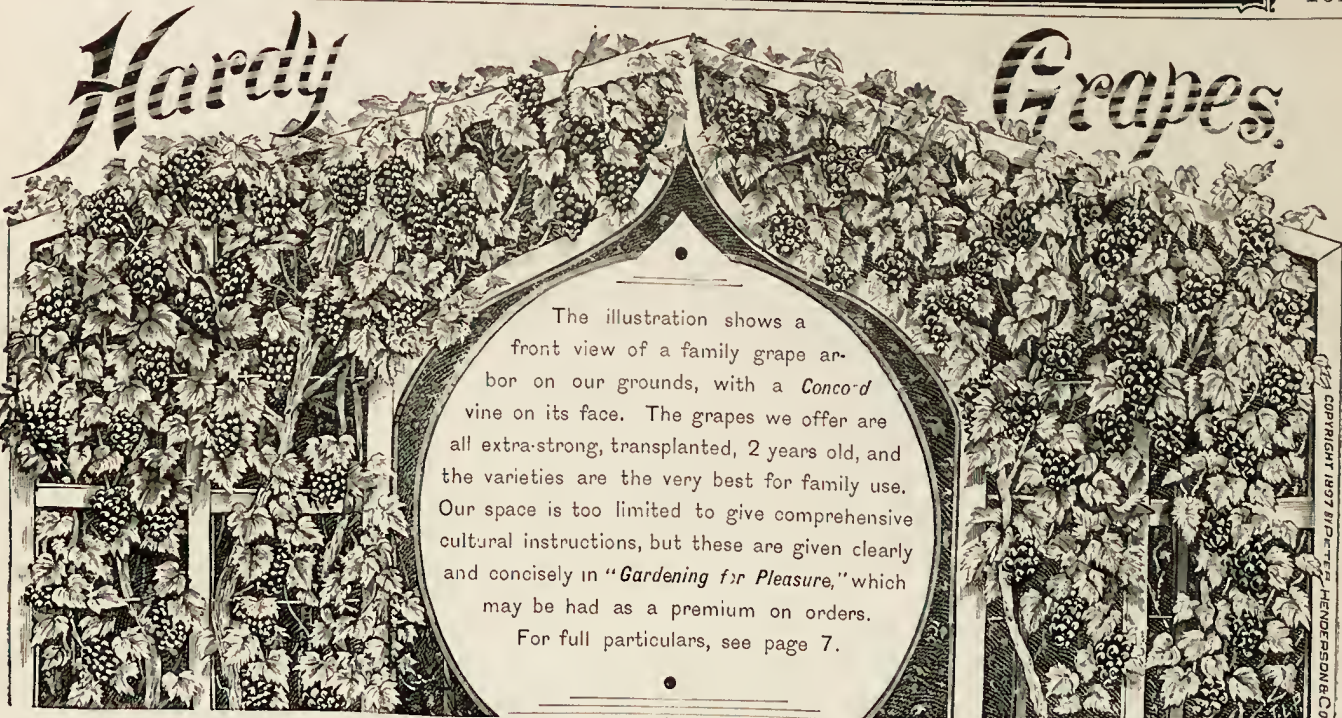 Hardy Grapes.
The illustration shows a
front view of a family grape ar-
bor on our grounds, with a Concord
vine on its face. The grapes we offer are
all extra-strong, transplanted, 2 years old, and
the varieties are the very best for family use.
Our space is too limited to give comprehensive
cultural instructions, but these are given clearly
and concisely in "Gardening for Pleasure," which
may be had as a premium on orders.
For full particulars, see page 7.
COPYRIGHT 1897 BY PETER HENDERSON & CO